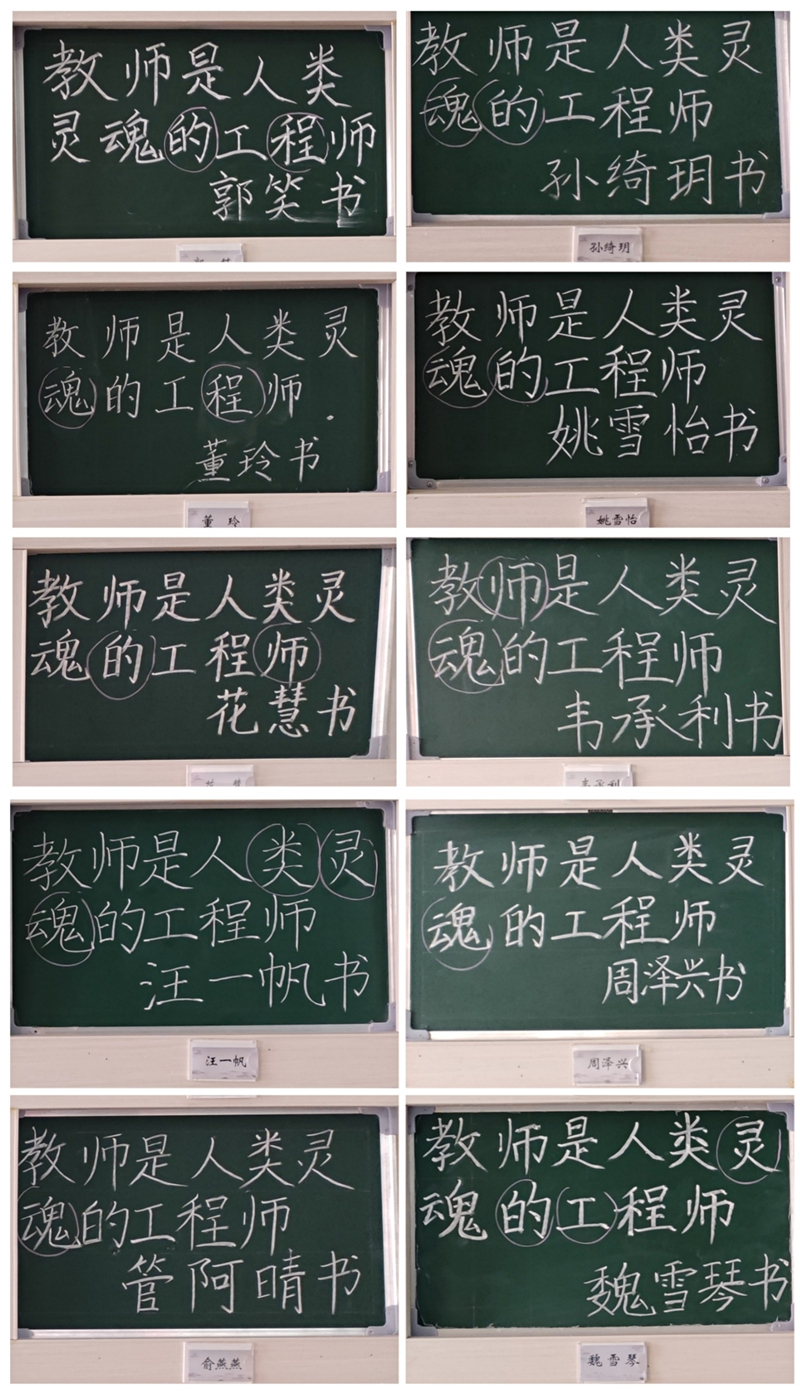 教师是人类
灵魂的工程师
郭笑书
教师是人类灵
魂的工程师
孙绮玥书
孙绮玥
教师是人类灵
魂的工程师
董玲书
董玲
教师是人类灵
魂的工程师
姚雪怡书
姚雪怡
教师是人类灵
魂的工程师
花慧书
教师是人类灵
魂的工程师
韦承利书
韦承利
教师是人类灵
魂的工程师
汪一帆书
汪一帆
教师是人类灵
魂的工程师
周泽兴书
周泽兴
教师是人类灵
魂的工程师
管阿晴书
俞燕燕
教师是人类灵
魂的工程师
魏雪琴书
魏雪琴